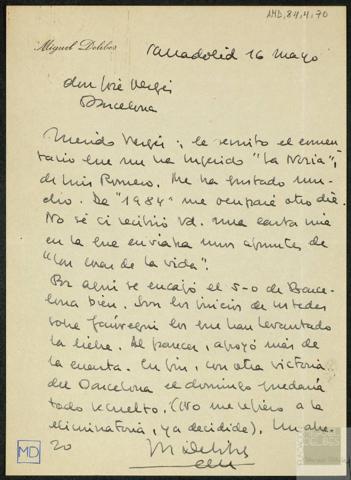 AMD, 84, 4, 70
Miguel Delibes
Valladolid 16 mayo
don José Vergés
Barcelona
Querido Vergés: le remito el comen-
tario que me ha sugerido "La Noria",
de Luis Romero. Me ha gustado mu-
cho. De "1984" me ocuparé otro día.
No sé si recibió Vd. una carta mía
en la que enviaba unos apuntes de
"Las cosas de la vida".
Por aquí se encajó el 5-0 de Barce-
lona bien. Son los juicios de ustedes
sobre los que han levantado
la liebre. Al parecer, apoyó más de
la cuenta. En fin, con otra victoria
del Barcelona el domingo quedaría
todo resuelto. (No me refiero a la
eliminatoria, ya decidida). Un abra-
zo
M Delibes
MD
DELIBES